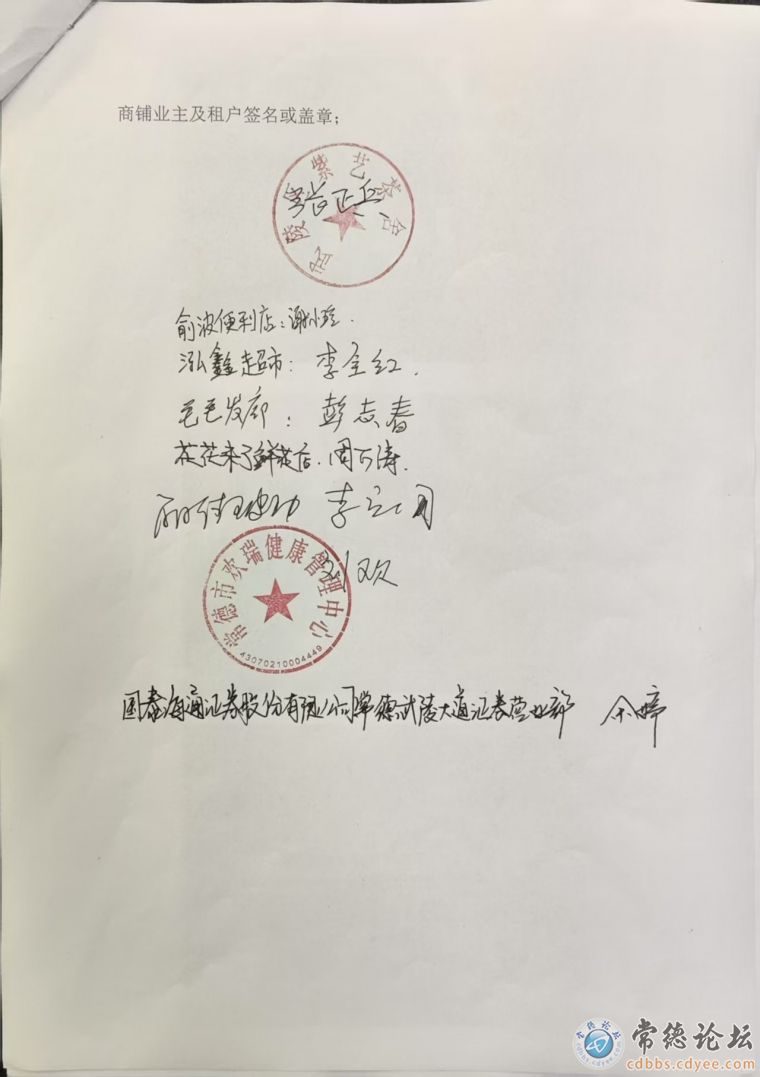 商铺业主及租户签名或盖章；
武陵紫艺茶舍
俞波便利店：谢小玲.
泓鑫超市：李全红.
毛毛发廊：彭志春
花花来了鲜花店.周万涛.
李
常德市欢瑞健康管理中心
43070210004449
刘欢
国泰海通证券股份有限公司常德武陵大道证券营业部 余婷
常德论坛
cdbbs.cdyee.com